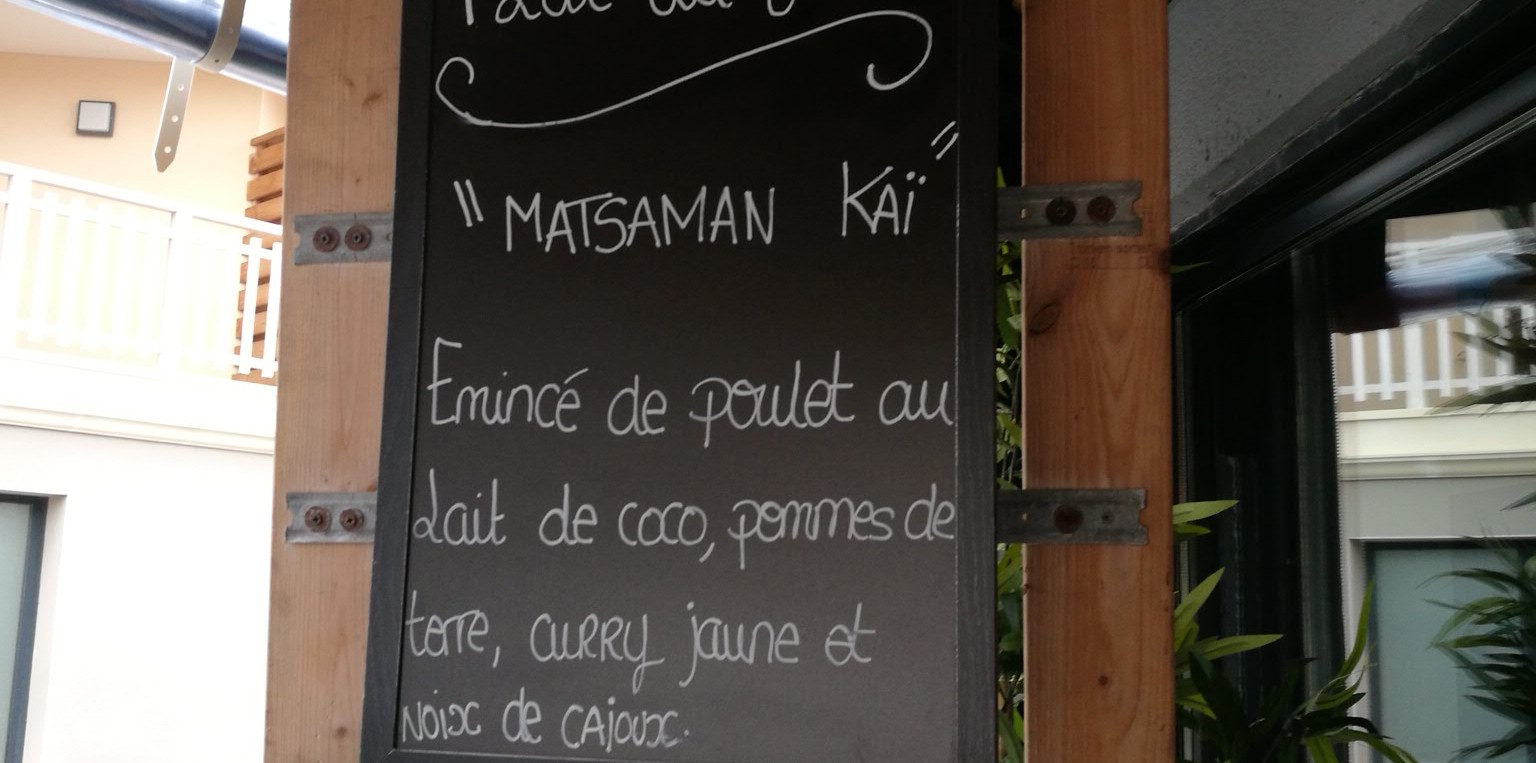 "MATSAMAN KAÏ"
Emincé de poulet au
Lait de coco, pommes de
terre, CURRY jaune et
NOIX de CAJOUX.